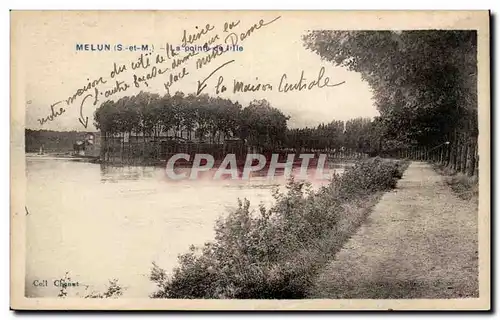 MELUN (S.-et-M.) — La pointe de l'île
notre maison du côté de la Seine
l'autre façade donne sur en
place Notre Dame
la Maison Centrale
CPARAMA.COM
Coll. Chenet